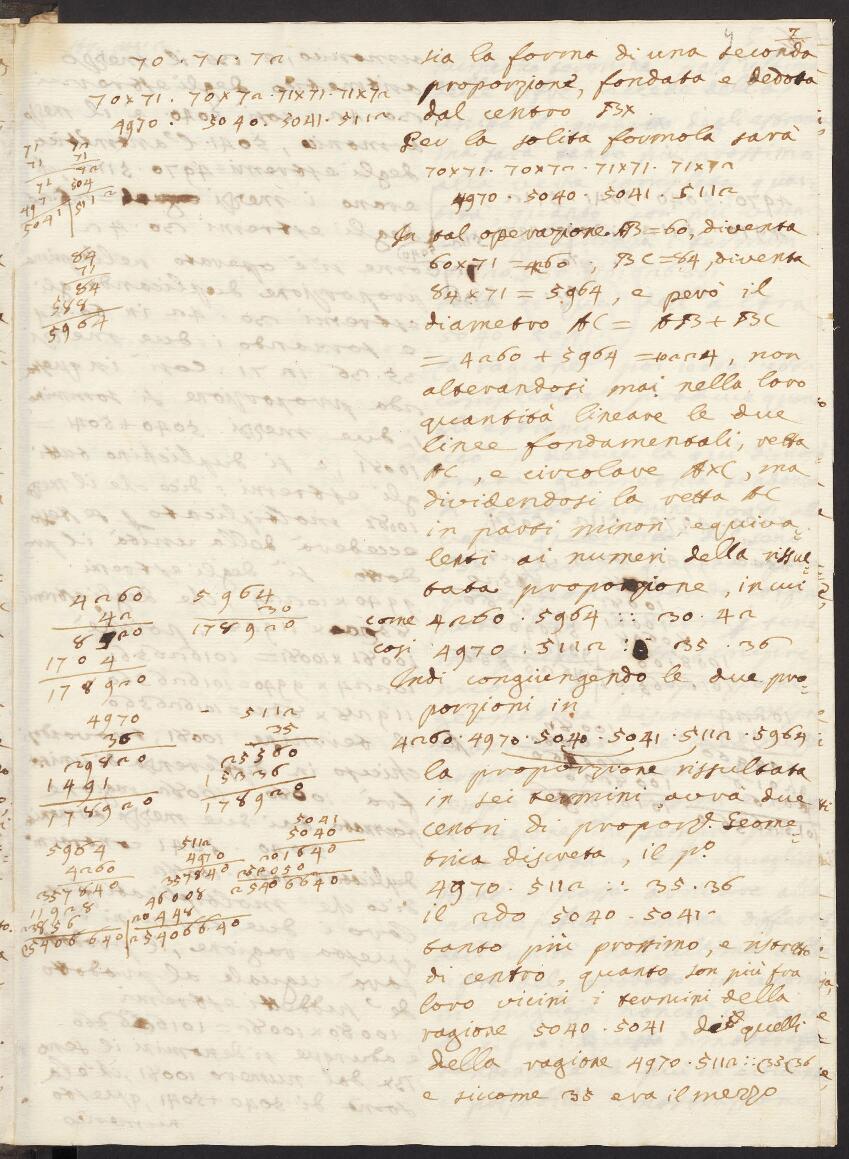 7
70 · 71 · 72
70x71 · 70x72 · 71x71 · 71x72
4970 · 5040 · 5041 · 5112
71
71
71
497
5041
72
71
72
504
5112
84
71
84
588
5964
4260
42
8520
1704
178920
5964
30
178920
4970
36
29820
1491
178920
5112
35
25560
15336
178920
5964
4260
357840
11928
23856
25406640
5112
4970
357840
46008
20448
25406640
5041
5040
201640
252050
25406640
sia la forma di una seconda
proporzione, fondata e dedota
dal centro BX
Per la solita formola sarà
70x71 · 70x72 · 71x71 · 71x72
4970 · 5040 · 5041 · 5112
In tal operazione AB=60, diventa
60x71 = 4260, BC=84, diventa
84x71 = 5964, e però il
diametro AC = AB+BC
= 4260 + 5964 = 10224, non
alterandosi mai nella loro
quantità lineare le due
linee fondamentali, retta
AC, e circolare AXC, ma
dividendosi la retta AC
in parti minori equiva=
lenti ai numeri della rissul=
tata proporzione, in cui
come 4260 · 5964 :: 30 · 42
così 4970 · 5112 :: 35 · 36
Indi congiungendo le due pro=
porzioni in
4260 · 4970 · 5040 · 5041 · 5112 · 5964
la proporzione rissultata
in sei termini avrà due
centri di proporz. Geome=
trica discreta, il p.o
4970 · 5112 :: 35 · 36
il 2do 5040 · 5041
tanto più prossimo, e ristretto
di centro, quanto son più fra
loro vicini i termini della
ragione 5040 · 5041 di quelli
della ragione 4970 · 5112 :: 35 · 36
e siccome 35 era il mezzo